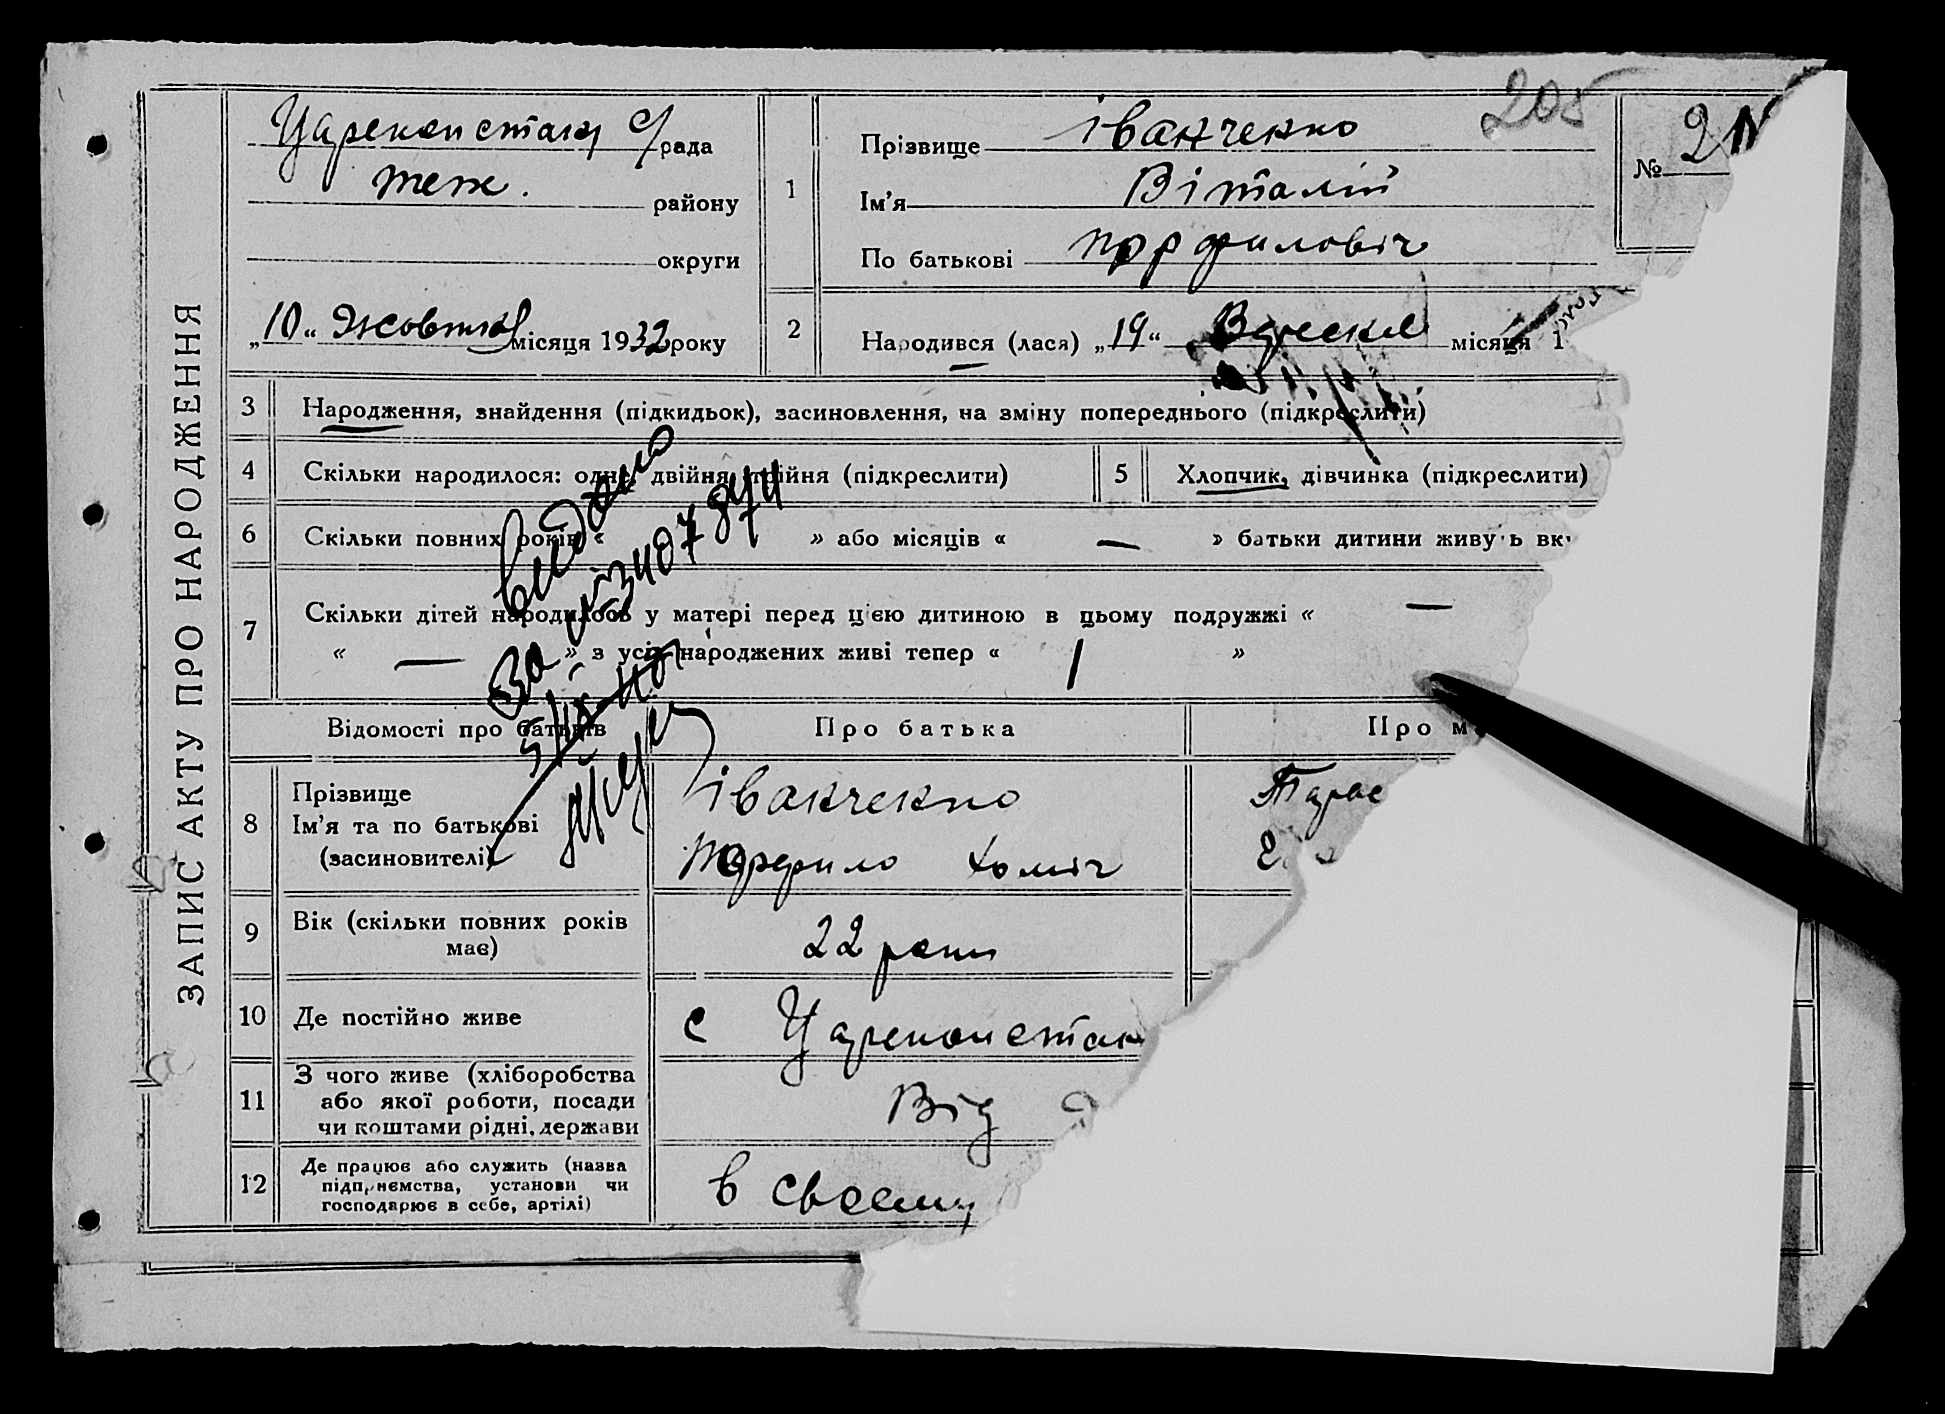 205
ЗАПИС АКТУ ПРО НАРОДЖЕННЯ
с/рада
теж. району
округи
„10“ Жовтня місяця 1932 року
1
Прізвище Іванченко
Ім'я Віталій
По батькові Порфилович
№ 2
2
Народився (лася) „19“ Вересня місяця 1
3 Народження, знайдення (підкидьок), засиновлення, на зміну попереднього (підкреслити)
4 Скільки народилося: одне, двійня, трійня (підкреслити)
5 Хлопчик, дівчинка (підкреслити)
6 Скільки повних років « » або місяців « — » батьки дитини живуть вк
7 Скільки дітей народилось у матері перед цією дитиною в цьому подружжі « —
« — » з усіх народжених живі тепер « 1 »
Відомості про батьків
Про батька
Про м
8 Прізвище
Ім'я та по батькові
(засиновителі)
Іванченко
Порфило Хоміч
Тарас
9 Вік (скільки повних років
має)
22 роки
10 Де постійно живе
с
11 З чого живе (хліборобства
або якої роботи, посади
чи коштами рідні, держави
Від
12 Де працює або служить (назва
підприємства, установи чи
господарює в себе, артілі)
в своему
видано